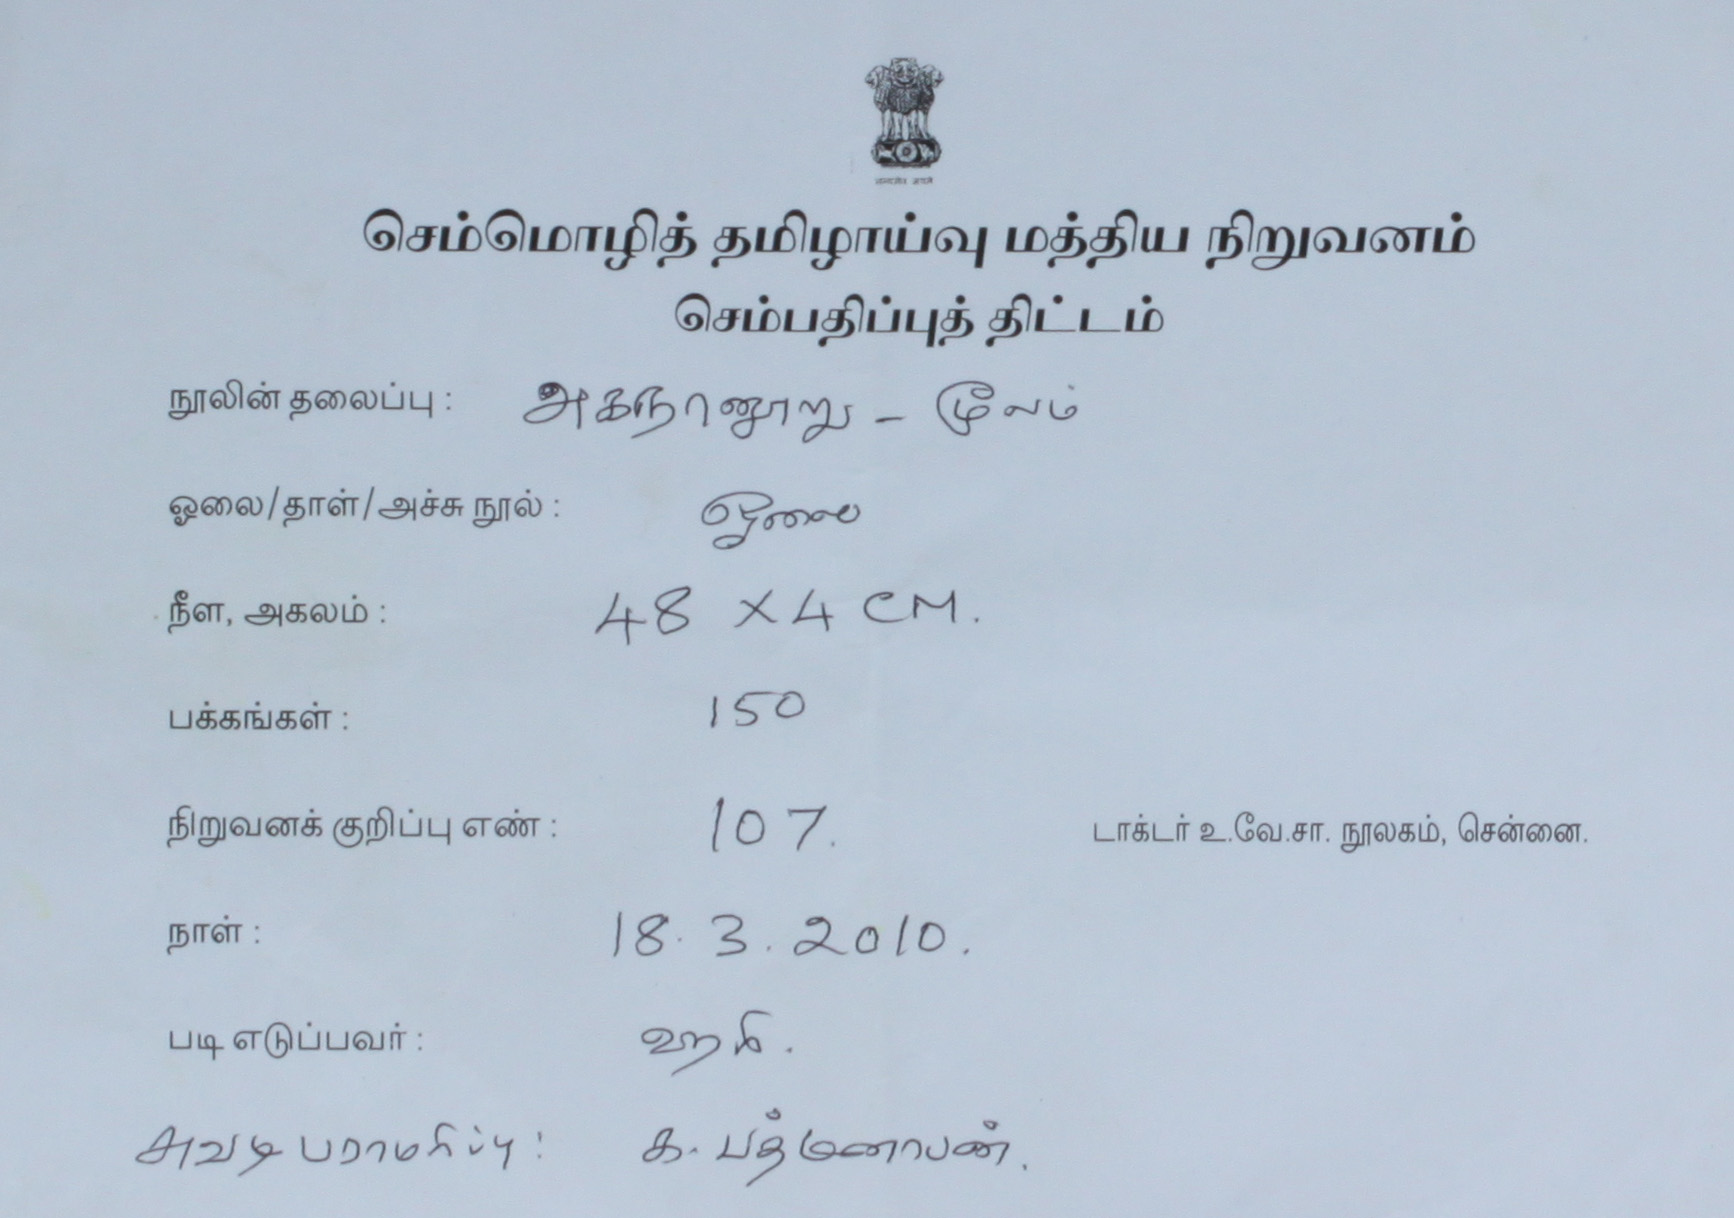 செம்மொழித் தமிழாய்வு மத்திய நிறுவனம்
செம்பதிப்புத் திட்டம்
நூலின் தலைப்பு : அகநானூறு - மூலம்
ஓலை/தாள்/அச்சு நூல் : ஓலை
நீள, அகலம் : 48 X 4 CM.
பக்கங்கள் : 150
நிறுவனக் குறிப்பு எண் : 107. டாக்டர் உ.வே.சா. நூலகம், சென்னை.
நாள் : 18.3.2010.
படி எடுப்பவர் : ஹரி.
சுவடி பராமரிப்பு : க. பத்மனாபன்.